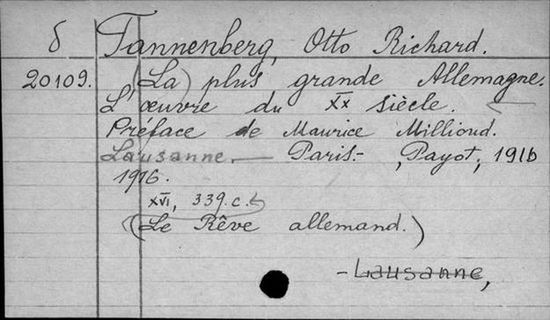 δ Tannenberg, Otto Richard.
20109. (La) plus grande Allemagne.
L'œuvre du XX siècle.
Préface de Maurice Millioud.
Lausanne. — Paris.-, Payot, 1916
1916.
XVI, 339.c.
(Le Rêve allemand.)
- Lausanne,